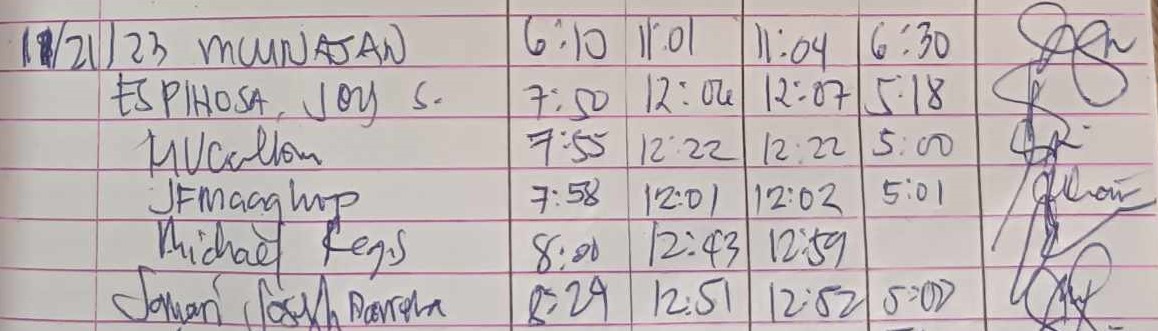 11/21/23 MCUNAJAN 6:10 11:01 11:04 6:30
ESPINOSA, JOY S. 7:50 12:06 12:07 5:18
7:55 12:22 12:22 5:00
7:58 12:01 12:02 5:01
Michael Regis 8:00 12:43 12:59
Joseph 8:29 12:51 12:52 5:00